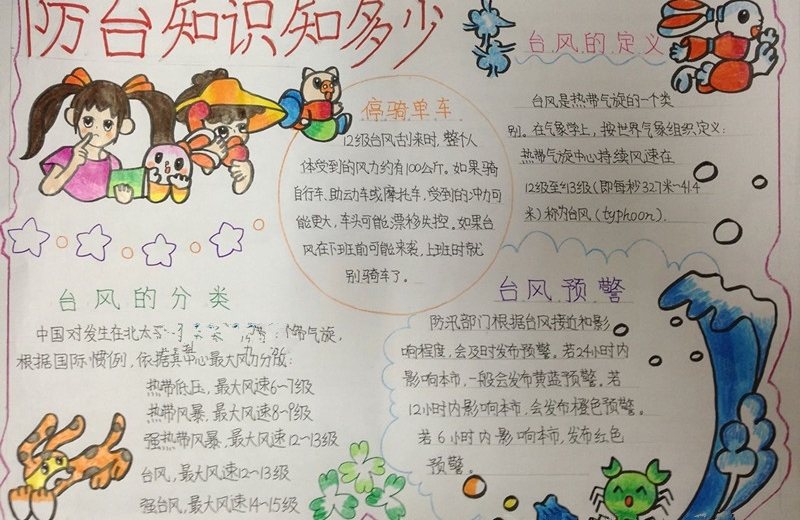 防台知识知多少
停骑单车
12级台风刮来时，整个人
体受到的风力约有100公斤。如果骑
自行车、助动车或摩托车，受到的冲力可
能更大，车头可能漂移失控。如果台
风在下班前可能来袭，上班时就
别骑车了。
台风的定义
台风是热带气旋的一个类
别。在气象学上，按世界气象组织定义：
热带气旋中心持续风速在
12级至13级（即每秒32.7米~41.4
米）称为台风（typhoon）.
台风的分类
中国对发生在北太 带气旋，
根据国际惯例，依据其中心最大风力分为：
热带低压，最大风速6~7级
热带风暴，最大风速8~9级
强热带风暴，最大风速12~13级
台风，最大风速12~13级
强台风，最大风速14~15级
台风预警
防汛部门根据台风接近和影
响程度，会及时发布预警。若24小时内
影响本市，一般会发布黄蓝预警。若
12小时内影响本市，会发布橙色预警。
若6小时内影响本市，发布红色
预警。